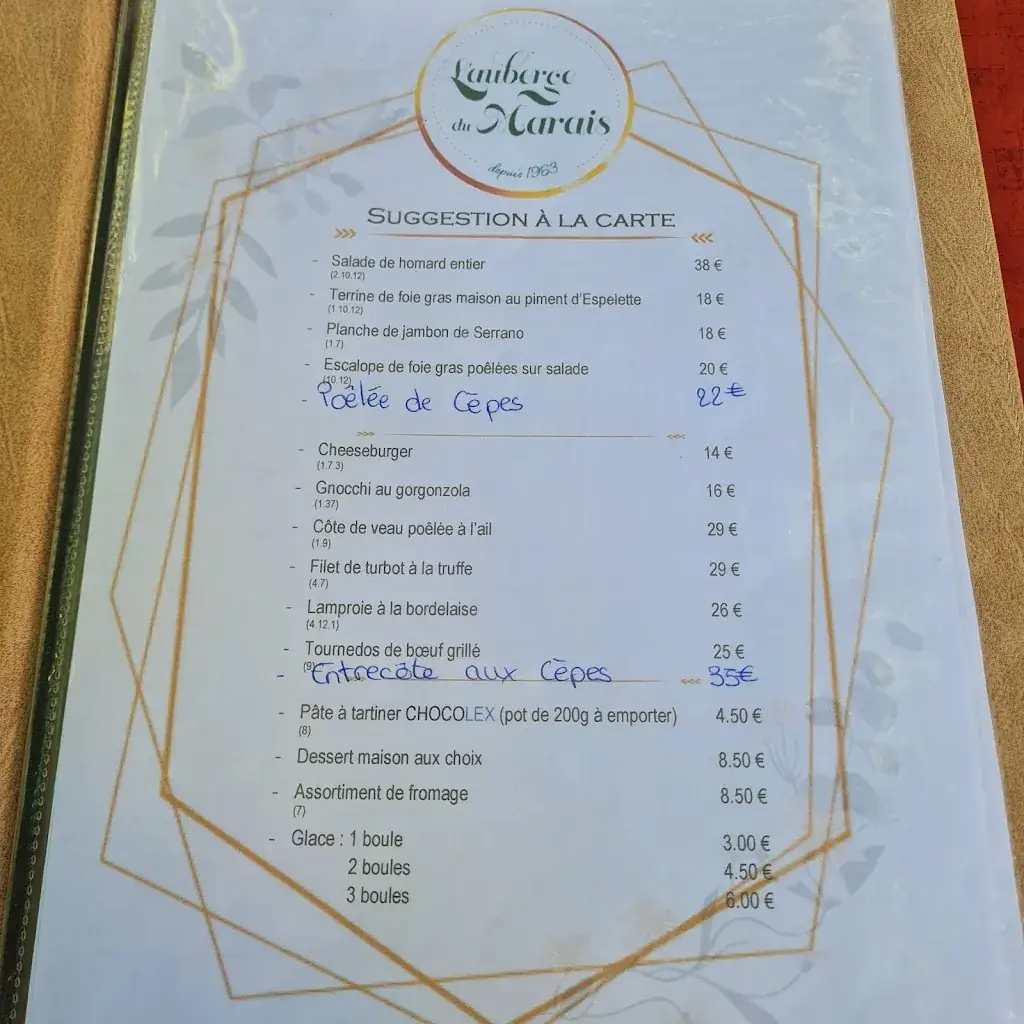 L'auberge
du Marais
depuis 1963
SUGGESTION À LA CARTE
- Salade de homard entier 38 €
(2.10.12)
- Terrine de foie gras maison au piment d'Espelette 18 €
(1.10.12)
- Planche de jambon de Serrano 18 €
(1.7)
- Escalope de foie gras poêlées sur salade 20 €
(10.12)
- Poêlée de Cèpes 22€
- Cheeseburger 14 €
(1.7.3)
- Gnocchi au gorgonzola 16 €
(1.37)
- Côte de veau poêlée à l'ail 29 €
(1.9)
- Filet de turbot à la truffe 29 €
(4.7)
- Lamproie à la bordelaise 26 €
(4.12.1)
- Tournedos de bœuf grillé 25 €
(9)
- Entrecôte aux Cèpes 35€
- Pâte à tartiner CHOCOLEX (pot de 200g à emporter) 4.50 €
(8)
- Dessert maison aux choix 8.50 €
- Assortiment de fromage 8.50 €
(7)
- Glace : 1 boule 3.00 €
2 boules 4.50 €
3 boules 6.00 €